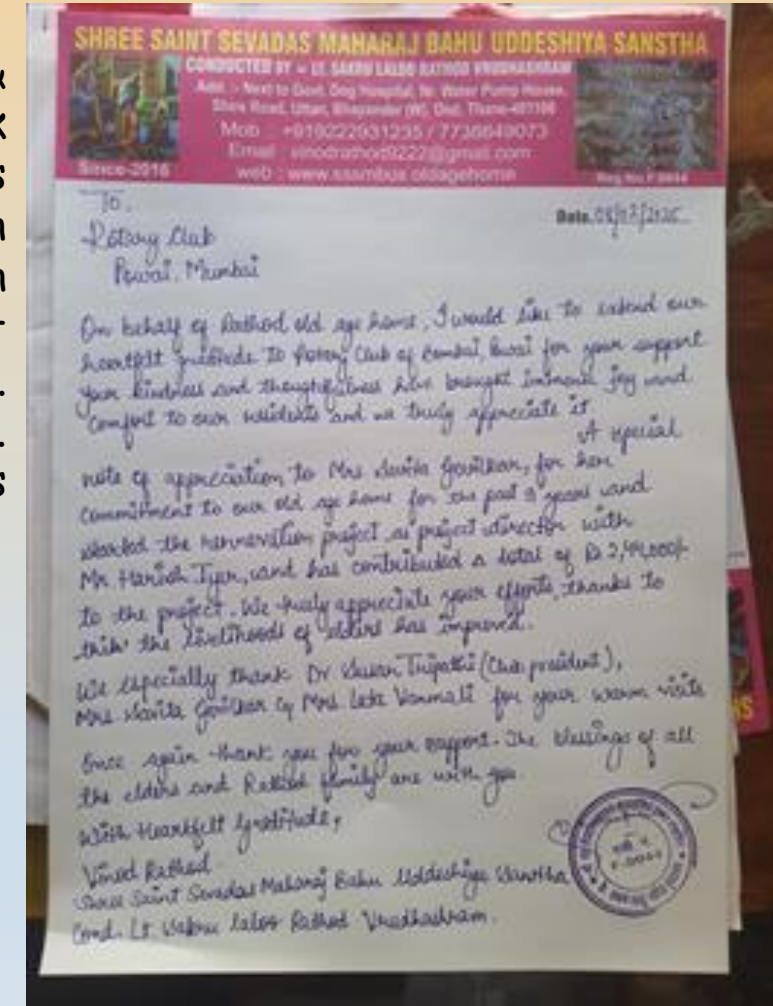 SHREE SAINT SEVADAS MAHARAJ BAHU UDDESHIYA SANSTHA
CONDUCTED BY - LT. SAKRU LALOO RATHOD VRUDHASHRAM
Add. :- Next to Govt. Dog Hospital, Nr. Water Pump House,
Shire Road, Uttan, Bhayander (W), Dist. Thane-401106
Mob : +919222931235 / 7736649073
Email : vinodrathod9222@gmail.com
web : www.sssmbus oldagehome
Since-2016
Reg.No.F
To,
Date.
Rotary Club
Powai, Mumbai
On behalf of Rathod old age home, I would like to extend our
heartfelt gratitude to Rotary Club of Bombai, Powai for your support
your kindness and thoughtfulness have brought immense joy and
comfort to our residents and we truly appreciate it
A special
note of appreciation to Mrs Savita Govilkar, for her
commitment to our old age home for the past 9 years and
started the rennovation project as project director with
Mr Harish Iyer, and has contributed a total of Rs 2,94,000/-
to the project. We truly appreciate your efforts, thanks to
this the livelihoods of elders has improved.
We especially thank Dr Tripathi (Club president),
Mrs Savita Govilkar & Mrs Lata Vanmali for your warm visits
Once again thank you for your support. The blessings of all
the elders and Rathod family are with you
With Heartfelt Gratitude,
Vinod Rathod
Shree Saint Sevadas Maharaj Bahu Uddeshiya Sanstha
Cond. Lt Sakru laloo Rathod Vradhashram.